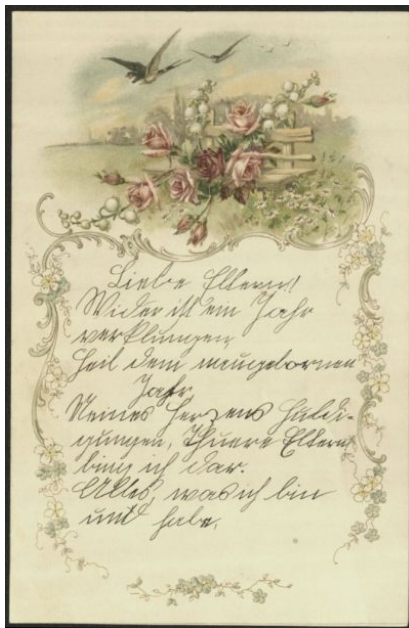 Liebe Eltern!
Wider ist ein Jahr
verklungen
Heil dem neugebornen
Jahr
Meines Herzens Huldi-
gungen, Thuere Eltern
bring ich dar.
Alles, was ich bin
und habe.